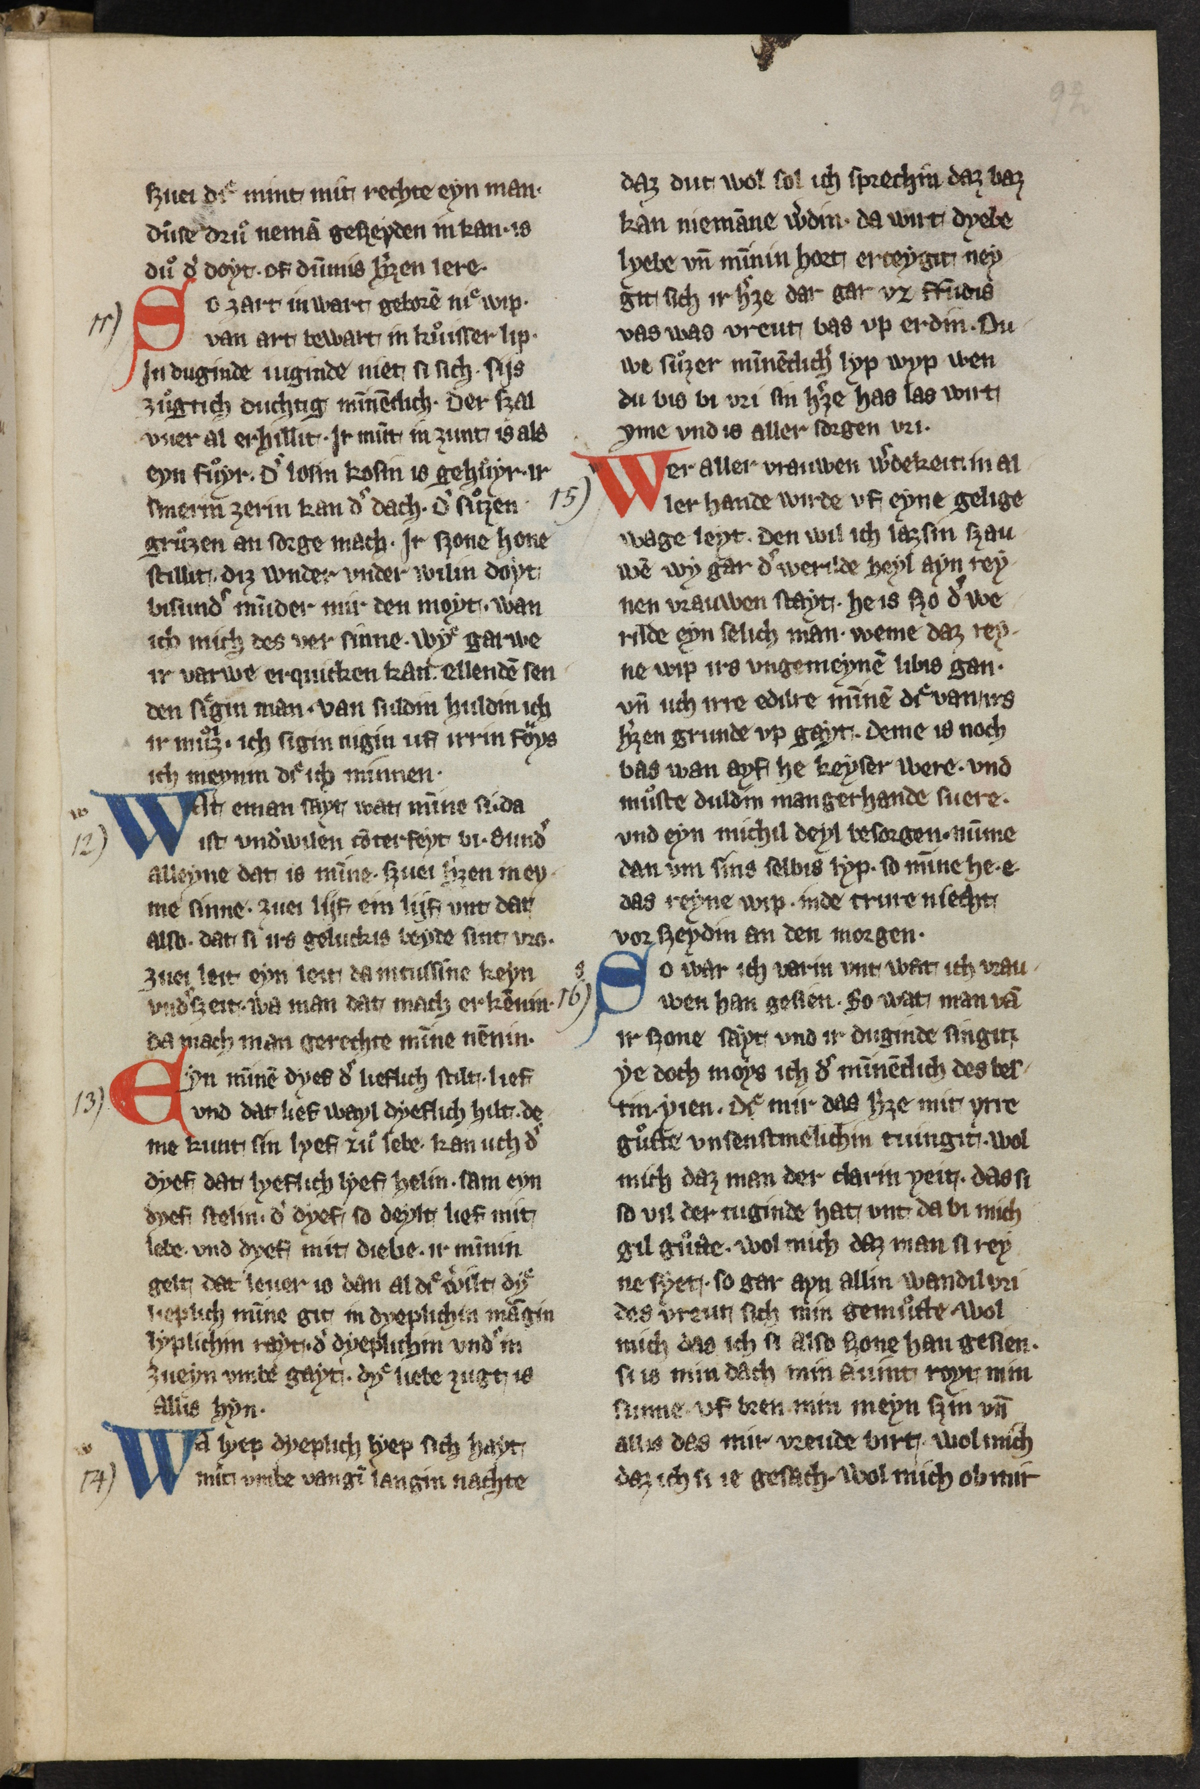 92
szuei diͤ mint mit rechte eyn man·
duͦse druͦ nemā gesheyden in kan· is
duͦ d' doyt· of dūmis h'zen lere·
11) So zart in wart geborē niͤ wip·
van art bewart in kuͦisser lip·
In duginde iuginde niet si sich· sijs
zuͦgtich duchtig mīnēclich· Der szal
vuer al erhillit· Ir mūt inzunt is als
eyn fuͦyr· d' losin kosin is gehuͦyr· ir
smerin zerin kan d' dach· d' suͦzen
gruͦzen an sorge mach· Ir szone hone
stillit· diz wnder vnder wilin doyt
bisund' mūder mir den moyt· wan
ich mich des ver sinne· wyͤ garwe
ir varwe erquicken kan· ellendē sen
den siͤgin man· van suldin huldin ich
ir muͦz· ich sigin nigin uf irrin foͤys
ich meynin diͤ ich minnen·
w
12) Wat eman sayt wat mīne si· da
ist vnd'wilen cōterfeyt bi· Sund'
alleyne dat is mīne· szuei h'zen in ey
me sinne· zuei lijf ein lijf vnt dat
also· dat si irs geluckis beyde sint vro·
zuei leit eyn leit da intussine keyn
vnd'szeit· wa man dat mach erkēnin·
da mach man gerechte mīne nēnin·
13) Eyn mīnē dyef d' lieflich stilt· lief
vnd dat lief wayl dyeflich hilt· de
me kunt sin lyef zuͦ lebe· kan uch d'
dyef dat lyeflich lyef helin· sam eyn
dyef stelin· d' dyef so deylt lief mit
lebe· vnd dyef mit diebe· ir mīnin
gelt dat leuer is dan al diͤ w'ilt dyͤ
lieplich mīne git in dyeplichin māgin
lyplichin rayt· d' dyeplichin vnd' in
zueyn vmbe gayt· dyͤ liebe zugt is
allis hyn·
w
14) Wa lyep dyeplich lyep sich hayt
mit vmbe vangī langin nachte
daz dut wol sol ich sprechin daz baz
kan niemāne w'din· da wirt dyebe
lyebe vn̄ mīnin hort erceygit ney
git sich ir h'ze dar gar vz frūdis
vas was vreut bas vp erdin· Du
we suͦzer mīnēclich' lyp wyp wen
du bis bi vri sin h'ze has las wirt
yme vnd is aller sorgen vri·
15) Wer aller vrauwen w'dekeit in al
ler hande wirde uf eyne gelige
wage leyt· Den wil ich lazsin szau
wē wy gar d' werilde heyl ayn rey
nen vrauwen stayt· he is szo d' we
rilde eyn selich man· weme daz rey
ne wip irs vngemeynē libis gan·
vn̄ uch irre edilre mīnē diͤ van irs
h'zen grunde vp gayt· Deme is noch
bas wan ayf he keyser were· vnd
muͦste duldin mangerhande suere·
vnd eyn michil deyl besorgen· nūme
dan vm sins selbis lyp· so mīne he· e·
das reyne wip· inde trure nieht
vor szeydin an den morgen·
s
16) So war ich varin vnt wat ich vrau
wen han gesien· So wat man vā
ir szone sayt vnd ir duginde singit
ye doch moys ich d' mīnēclich des bes
tin yien· Diͤ mir das h'ze mit yrre
guͦtte vnsenstmelichin tuingit· wol
mich daz man der clarin yeit· das si
so vil der tuginde hat vnt da bi mich
gil guͦtte· wol mich daz man si rey
ne syet· so gar ayn allin wandil vri
des vreut sich min gemuͦtte· wol
mich das ich si also szone han gesien·
si is min dach min auint royt min
sunne· uf bren min meyn szin vn̄
allis das mir vreude birt· wol mich
daz ich si ie gesach· wol mich ob mir